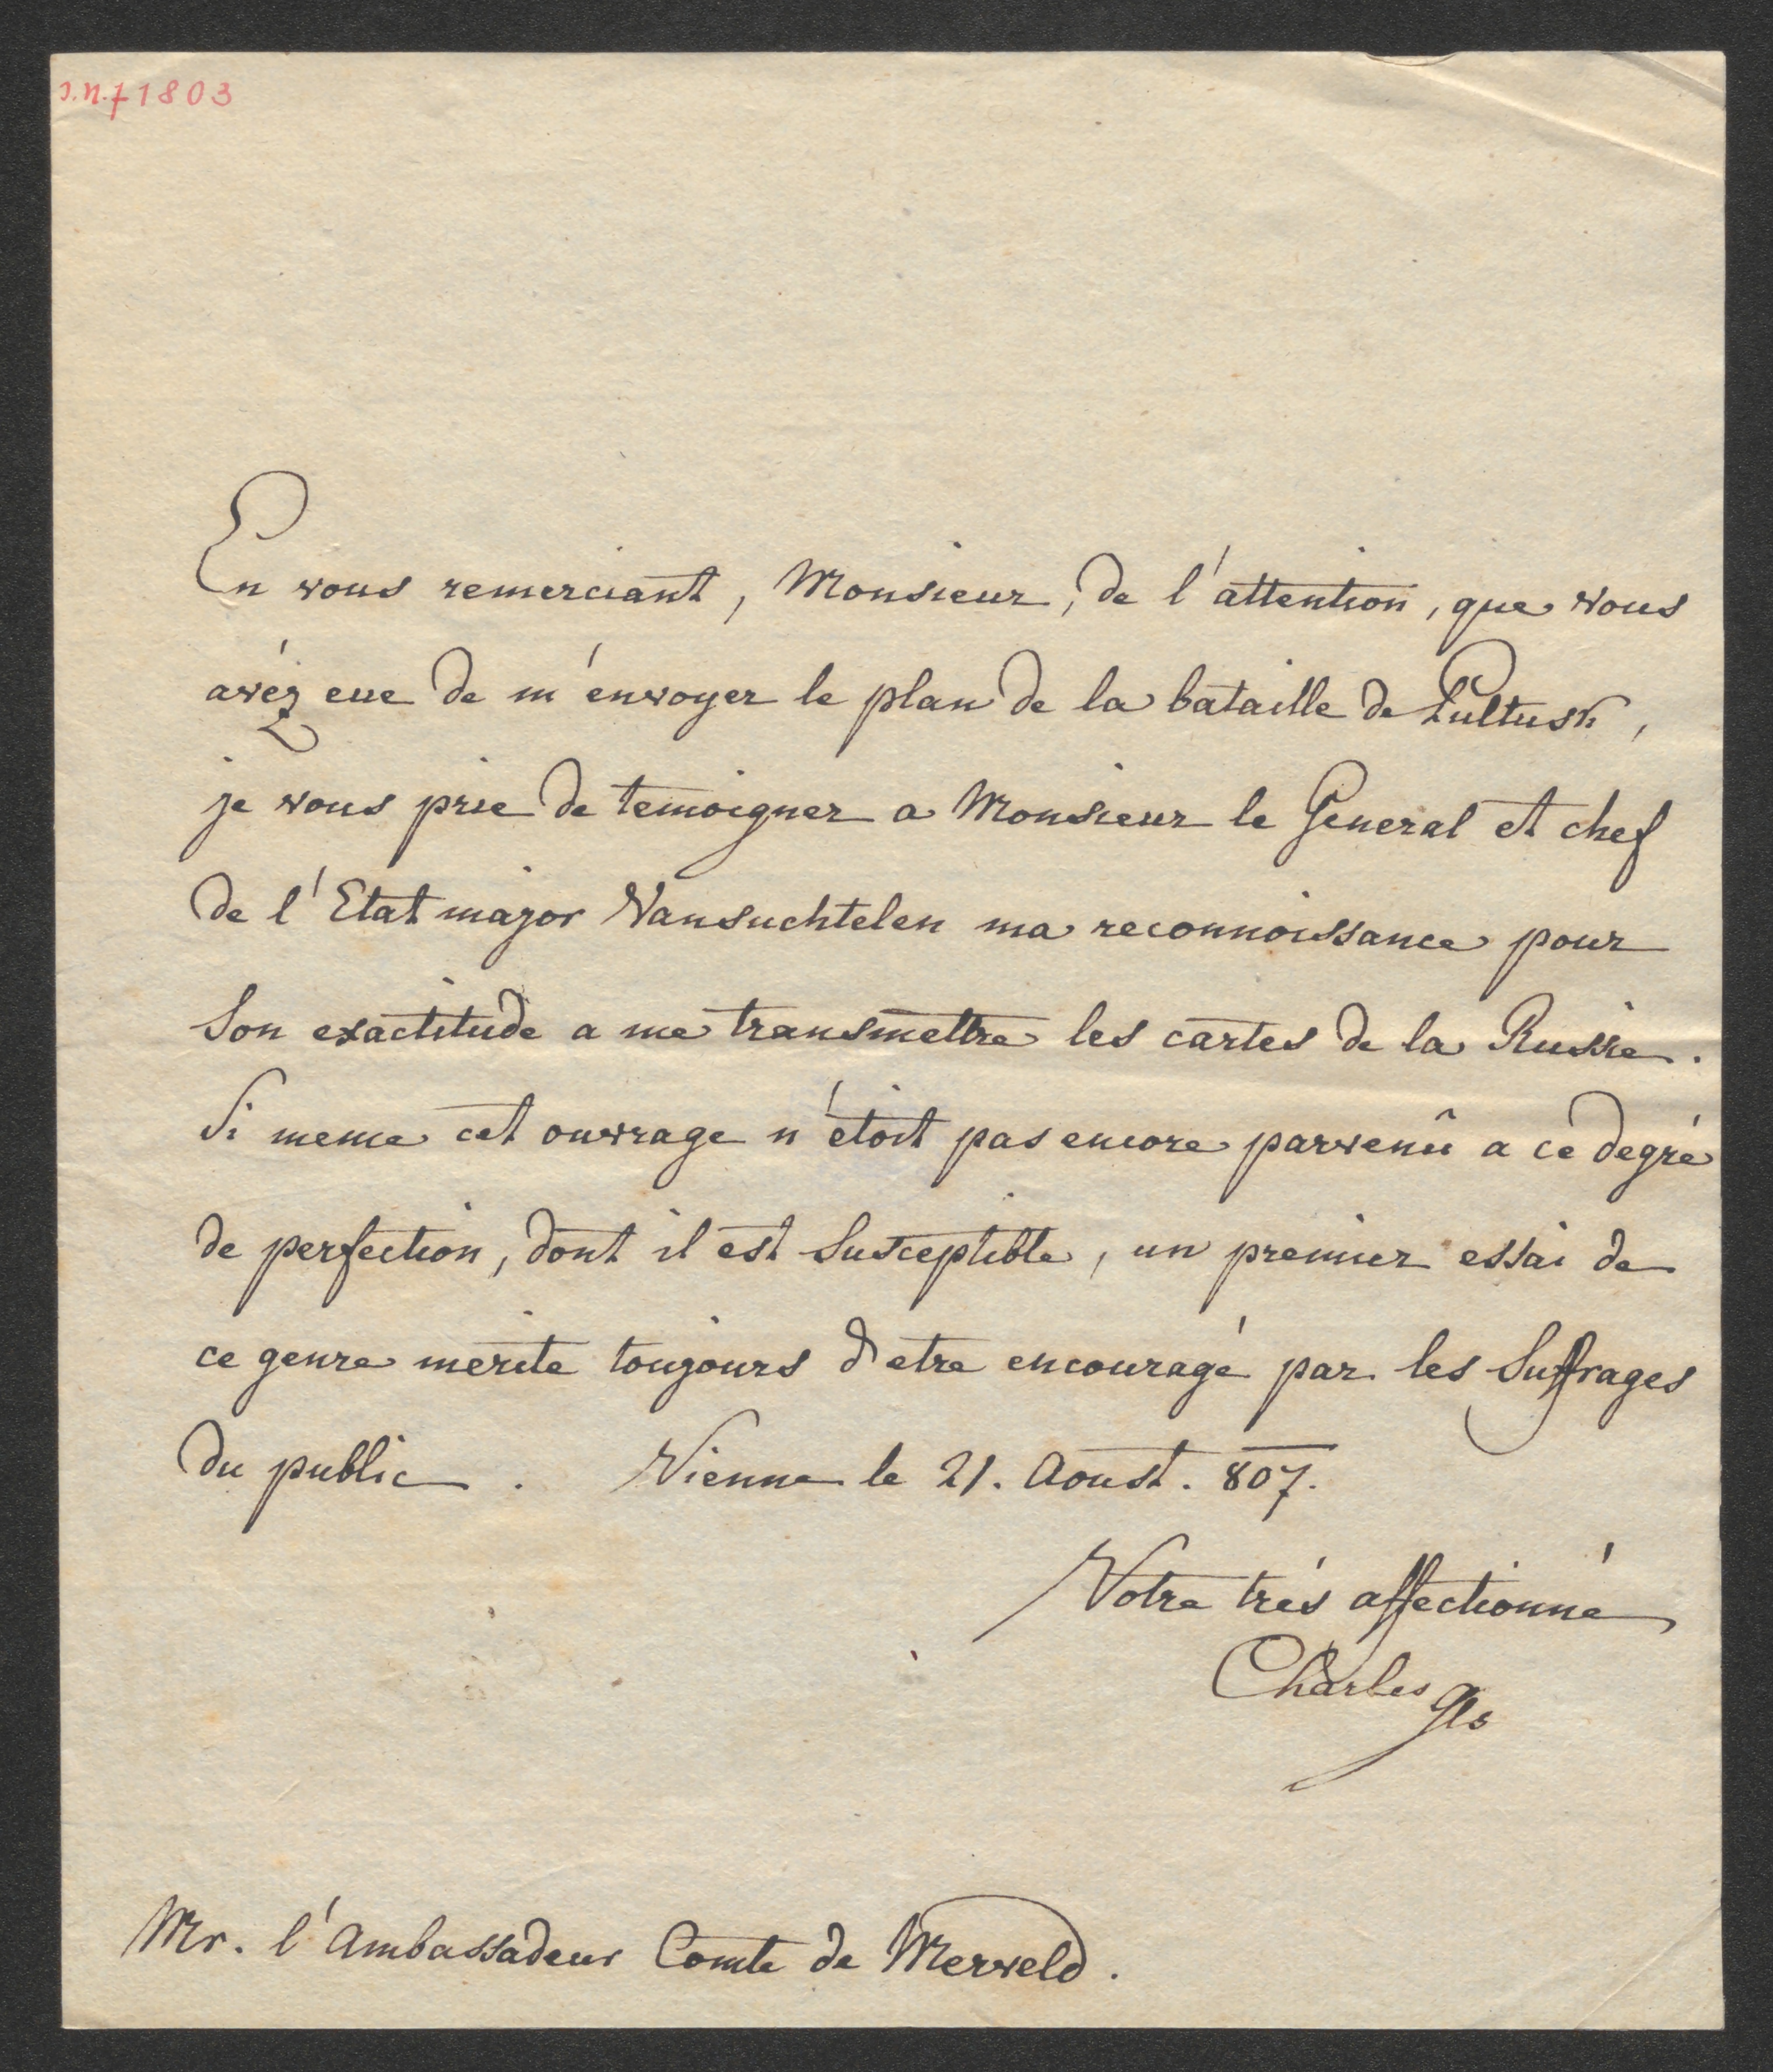 J.N.71803
En vous remerciant, Monsieur, de l'attention, que vous
avéz eue de m'envoyer le plan de la bataille de Pultusk,
je vous prie de temoigner a Monsieur le General et chef
de l'Etat major Vansuchtelen ma reconnoissance pour
son exactitude a me transmettre les cartes de la Russie.
Si meme cet ouvrage n'étoit pas encore parvenû a ce degré
de perfection, dont il est susceptible, un premier essai de
ce genre merite toujours d'etre encouragé par les suffrages
du public. Vienne le 21. Aoust. 807.
Votre trés affectionné
Charles
Mr. l'Ambassadeur Comte de Merveld.